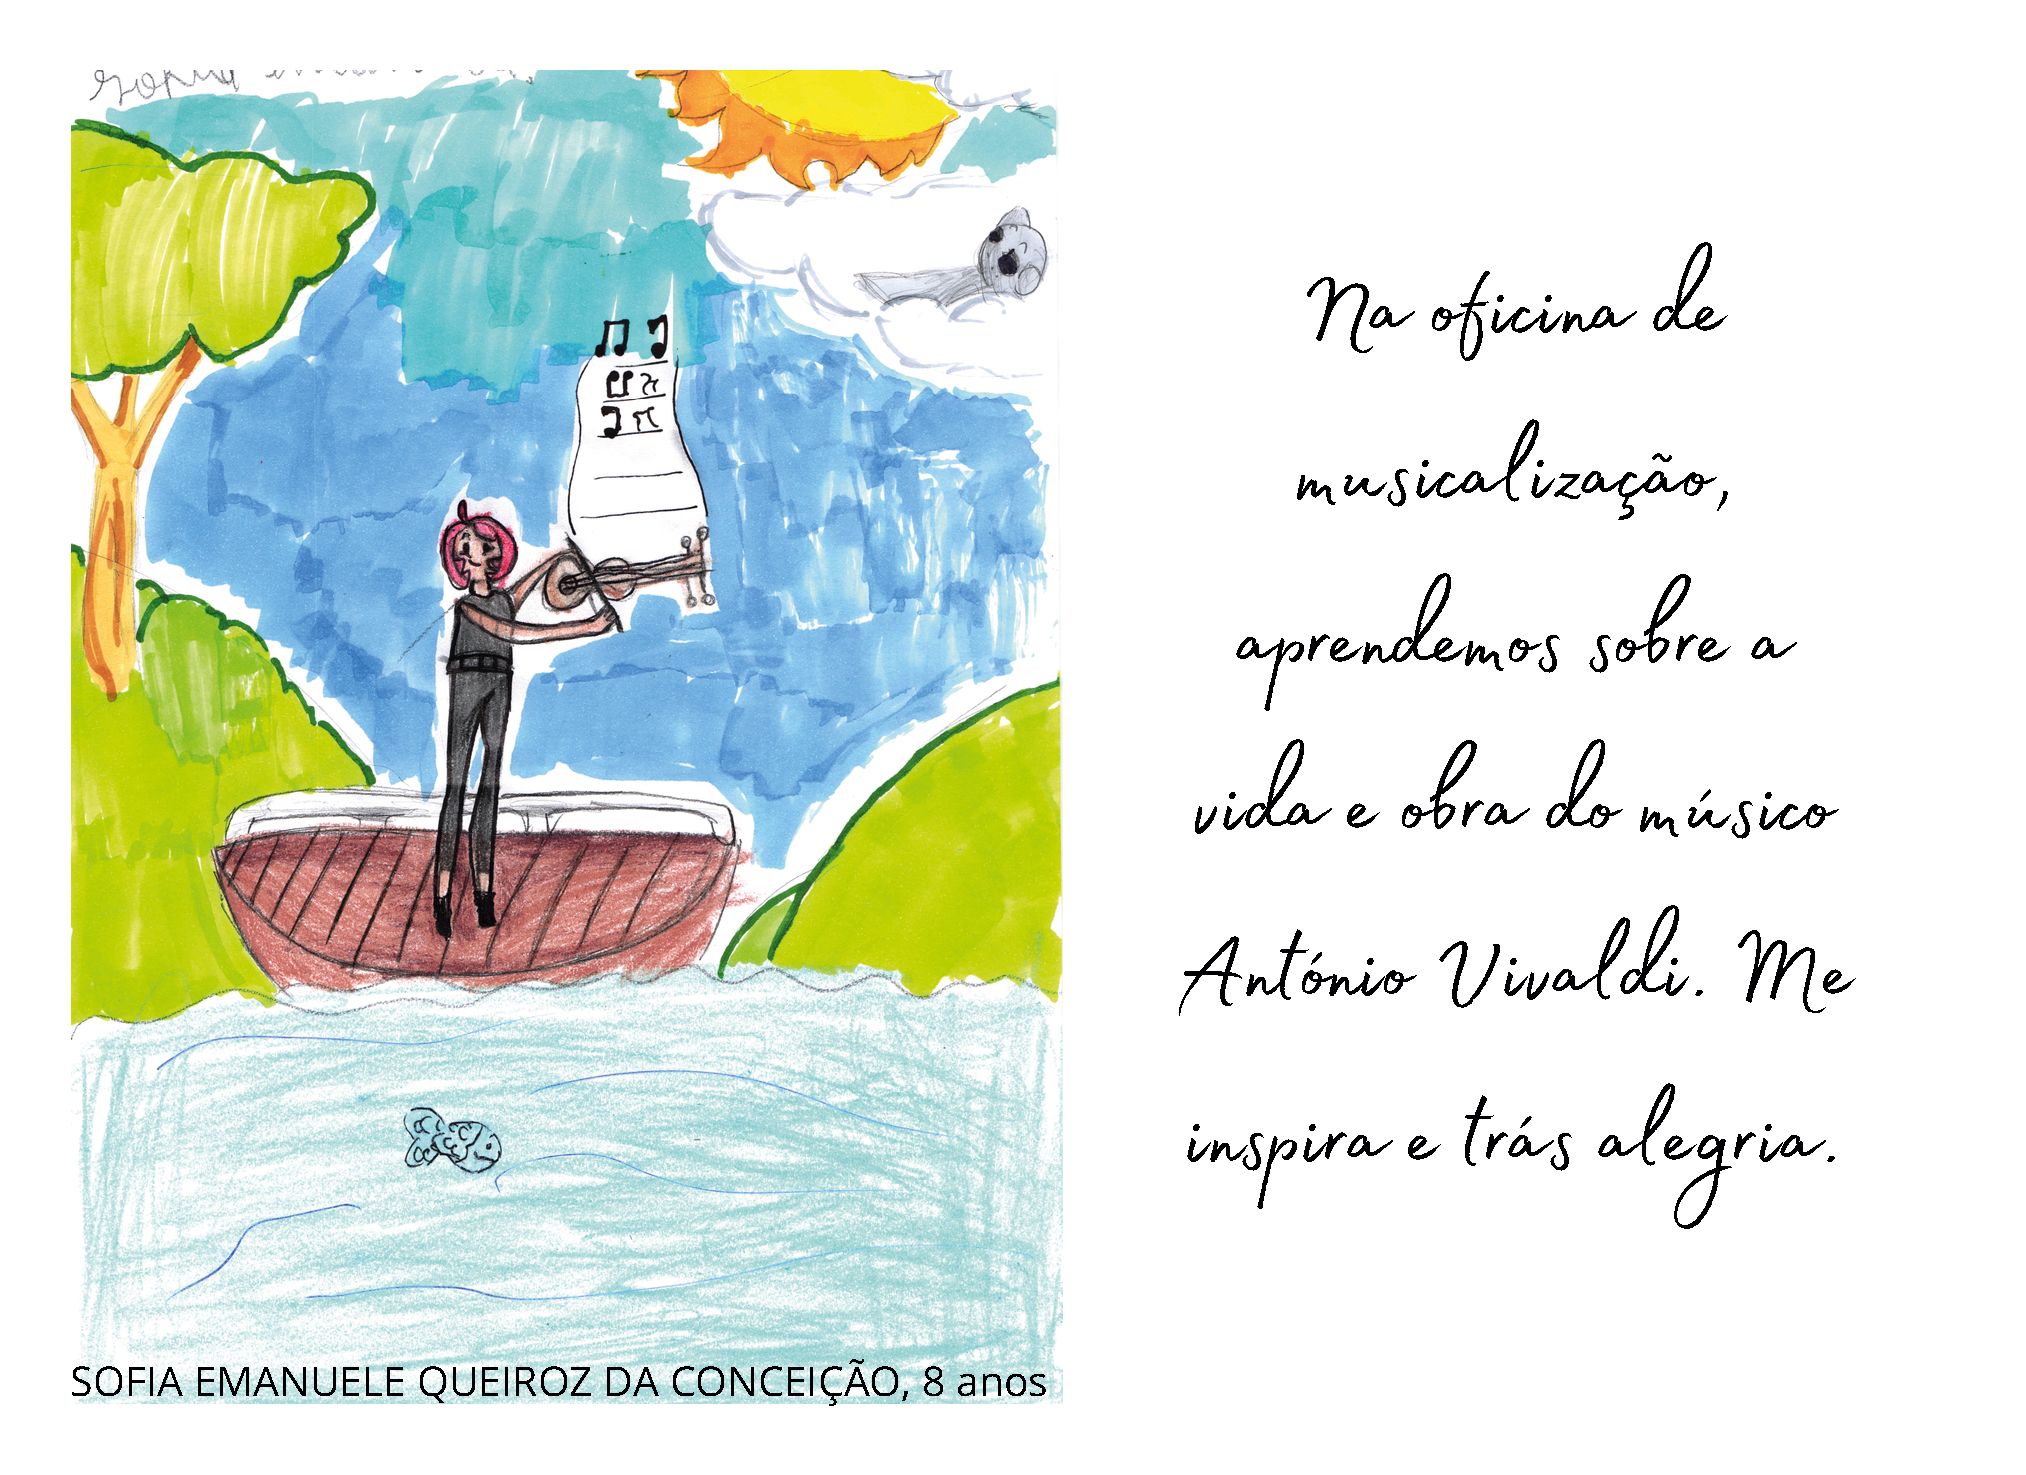 SOFIA EMANUELE QUEIROZ DA CONCEIÇÃO, 8 anos
Na oficina de
musicalização,
aprendemos sobre a
vida e obra do músico
António Vivaldi. Me
inspira e trás alegria.